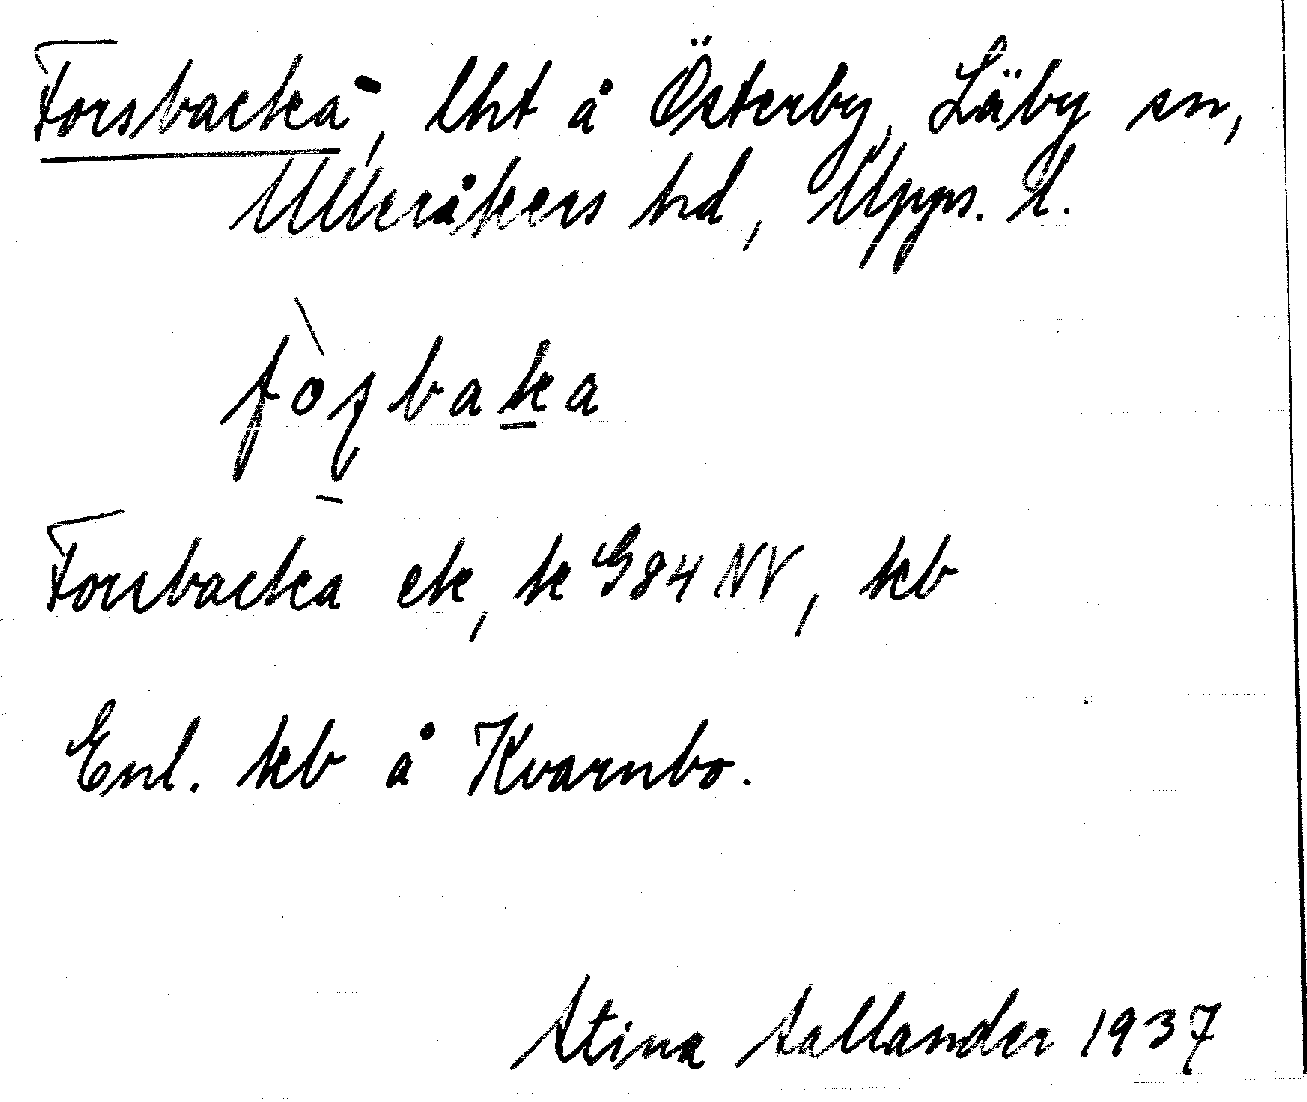 Forsbacka, lht å Österby, Läby sn,
Ulleråkers hd, Upps. l.
Forsbacka ek, k G84 NV, kb
Enl. kb å Kvarnbo.
Stina Sallander 1937